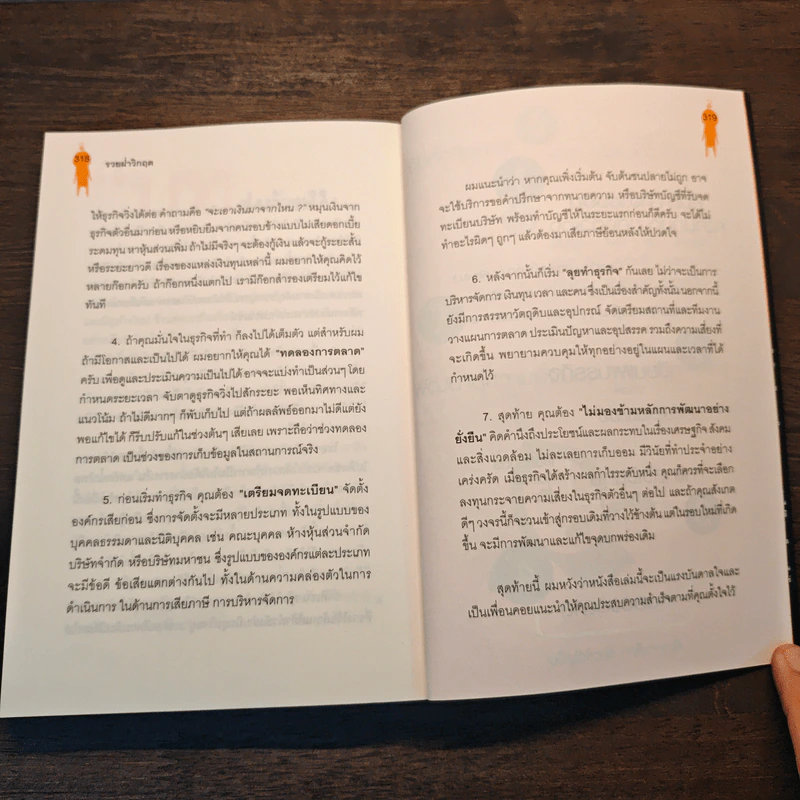 318
รวยฝ่าวิกฤต
ให้ธุรกิจวิ่งได้ต่อ คำถามคือ "จะเอาเงินมาจากไหน ?" หมุนเงินจาก
ธุรกิจตัวอื่นมาก่อน หรือหยิบยืมจากคนรอบข้างแบบไม่เสียดอกเบี้ย
ระดมทุน หาหุ้นส่วนเพิ่ม ถ้าไม่มีจริงๆ จะต้องกู้เงิน แล้วจะกู้ระยะสั้น
หรือระยะยาวดี เรื่องของแหล่งเงินทุนเหล่านี้ ผมอยากให้คุณคิดไว้
หลายก๊อกครับ ถ้าก๊อกหนึ่งแตกไป เรามีก๊อกสำรองเตรียมไว้แก้ไข
ทันที
4. ถ้าคุณมั่นใจในธุรกิจที่ทำ ก็ลงไปได้เต็มตัว แต่สำหรับผม
ถ้ามีโอกาสและเป็นไปได้ ผมอยากให้คุณได้ "ทดลองการตลาด"
ครับ เพื่อดูและประเมินความเป็นไปได้ อาจจะแบ่งทำเป็นส่วนๆ โดย
กำหนดระยะเวลา จับตาดูธุรกิจวิ่งไปสักระยะ พอเห็นทิศทางและ
แนวโน้ม ถ้าไม่ดีมากๆ ก็พับเก็บไป แต่ถ้าผลลัพธ์ออกมาไม่ดีแต่ยัง
พอแก้ไขได้ ก็รีบปรับแก้ในช่วงต้นๆ เสียเลย เพราะถือว่าช่วงทดลอง
การตลาด เป็นช่วงของการเก็บข้อมูลในสถานการณ์จริง
5. ก่อนเริ่มทำธุรกิจ คุณต้อง "เตรียมจดทะเบียน" จัดตั้ง
องค์กรเสียก่อน ซึ่งการจัดตั้งจะมีหลายประเภท ทั้งในรูปแบบของ
บุคคลธรรมดาและนิติบุคคล เช่น คณะบุคคล ห้างหุ้นส่วนจำกัด
บริษัทจำกัด หรือบริษัทมหาชน ซึ่งรูปแบบขององค์กรแต่ละประเภท
จะมีข้อดี ข้อเสียแตกต่างกันไป ทั้งในด้านความคล่องตัวในการ
ดำเนินการ ในด้านการเสียภาษี การบริหารจัดการ
319
ผมแนะนำว่า หากคุณเพิ่งเริ่มต้น จับต้นชนปลายไม่ถูก อาจ
จะใช้บริการขอคำปรึกษาจากทนายความ หรือบริษัทบัญชีที่รับจด
ทะเบียนบริษัท พร้อมทำบัญชีให้ในระยะแรกก่อนก็ดีครับ จะได้ไม่
ทำอะไรผิดๆ ถูกๆ แล้วต้องมาเสียภาษีย้อนหลังให้ปวดใจ
6. หลังจากนั้นก็เริ่ม "ลุยทำธุรกิจ" กันเลย ไม่ว่าจะเป็นการ
บริหารจัดการ เงินทุน เวลา และคน ซึ่งเป็นเรื่องสำคัญทั้งนั้น นอกจากนี้
ยังมีการสรรหาวัตถุดิบและอุปกรณ์ จัดเตรียมสถานที่และทีมงาน
วางแผนการตลาด ประเมินปัญหาและอุปสรรค รวมถึงความเสี่ยงที่
จะเกิดขึ้น พยายามควบคุมให้ทุกอย่างอยู่ในแผนและเวลาที่ได้
กำหนดไว้
7. สุดท้าย คุณต้อง "ไม่มองข้ามหลักการพัฒนาอย่าง
ยั่งยืน" คิดคำนึงถึงประโยชน์และผลกระทบในเรื่องเศรษฐกิจ สังคม
และสิ่งแวดล้อม ไม่ละเลยการเก็บออม มีวินัยที่ทำประจำอย่าง
เคร่งครัด เมื่อธุรกิจได้สร้างผลกำไรระดับหนึ่ง คุณก็ควรที่จะเลือก
ลงทุนกระจายความเสี่ยงในธุรกิจตัวอื่นๆ ต่อไป และถ้าคุณสังเกต
ดีๆ วงจรนี้ก็จะวนเข้าสู่กรอบเดิมที่วางไว้ข้างต้น แต่ในรอบใหม่ที่เกิด
ขึ้น จะมีการพัฒนาและแก้ไขจุดบกพร่องเดิม
สุดท้ายนี้ ผมหวังว่าหนังสือเล่มนี้จะเป็นแรงบันดาลใจและ
เป็นเพื่อนคอยแนะนำให้คุณประสบความสำเร็จตามที่คุณตั้งใจไว้